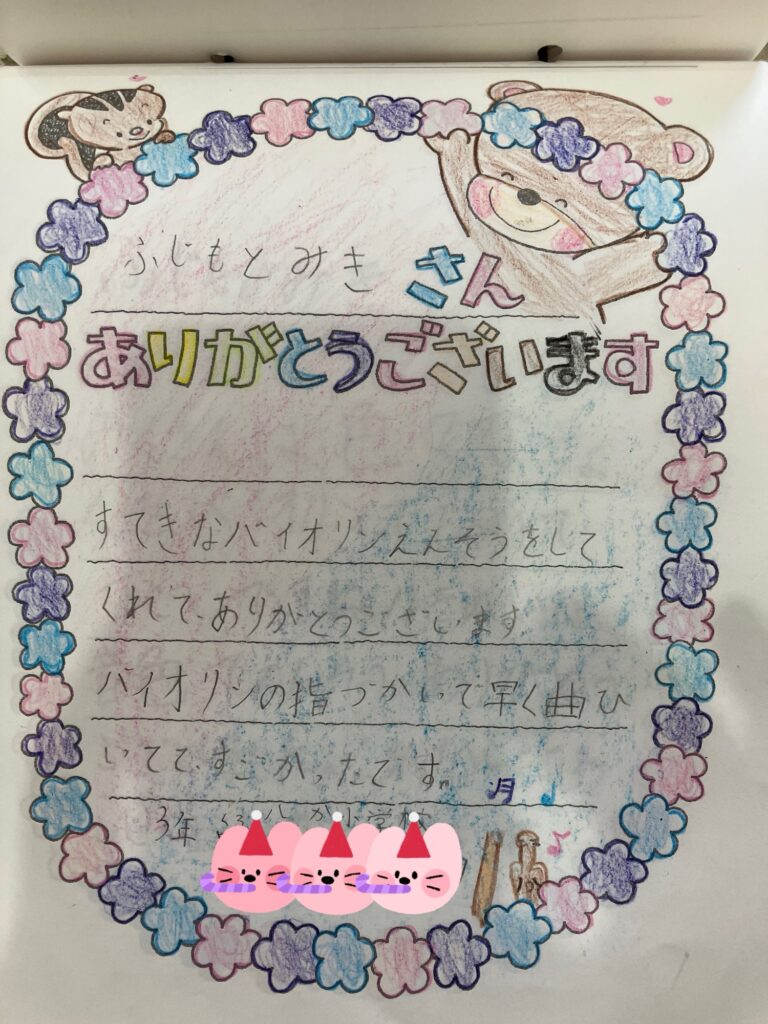 ふじもとみき さん
ありがとうございます
すてきなバイオリンえんそうをして
くれて、ありがとうございます
バイオリンの指づかいで早く曲ひ
いてて、すごかったです。
3年 小学校